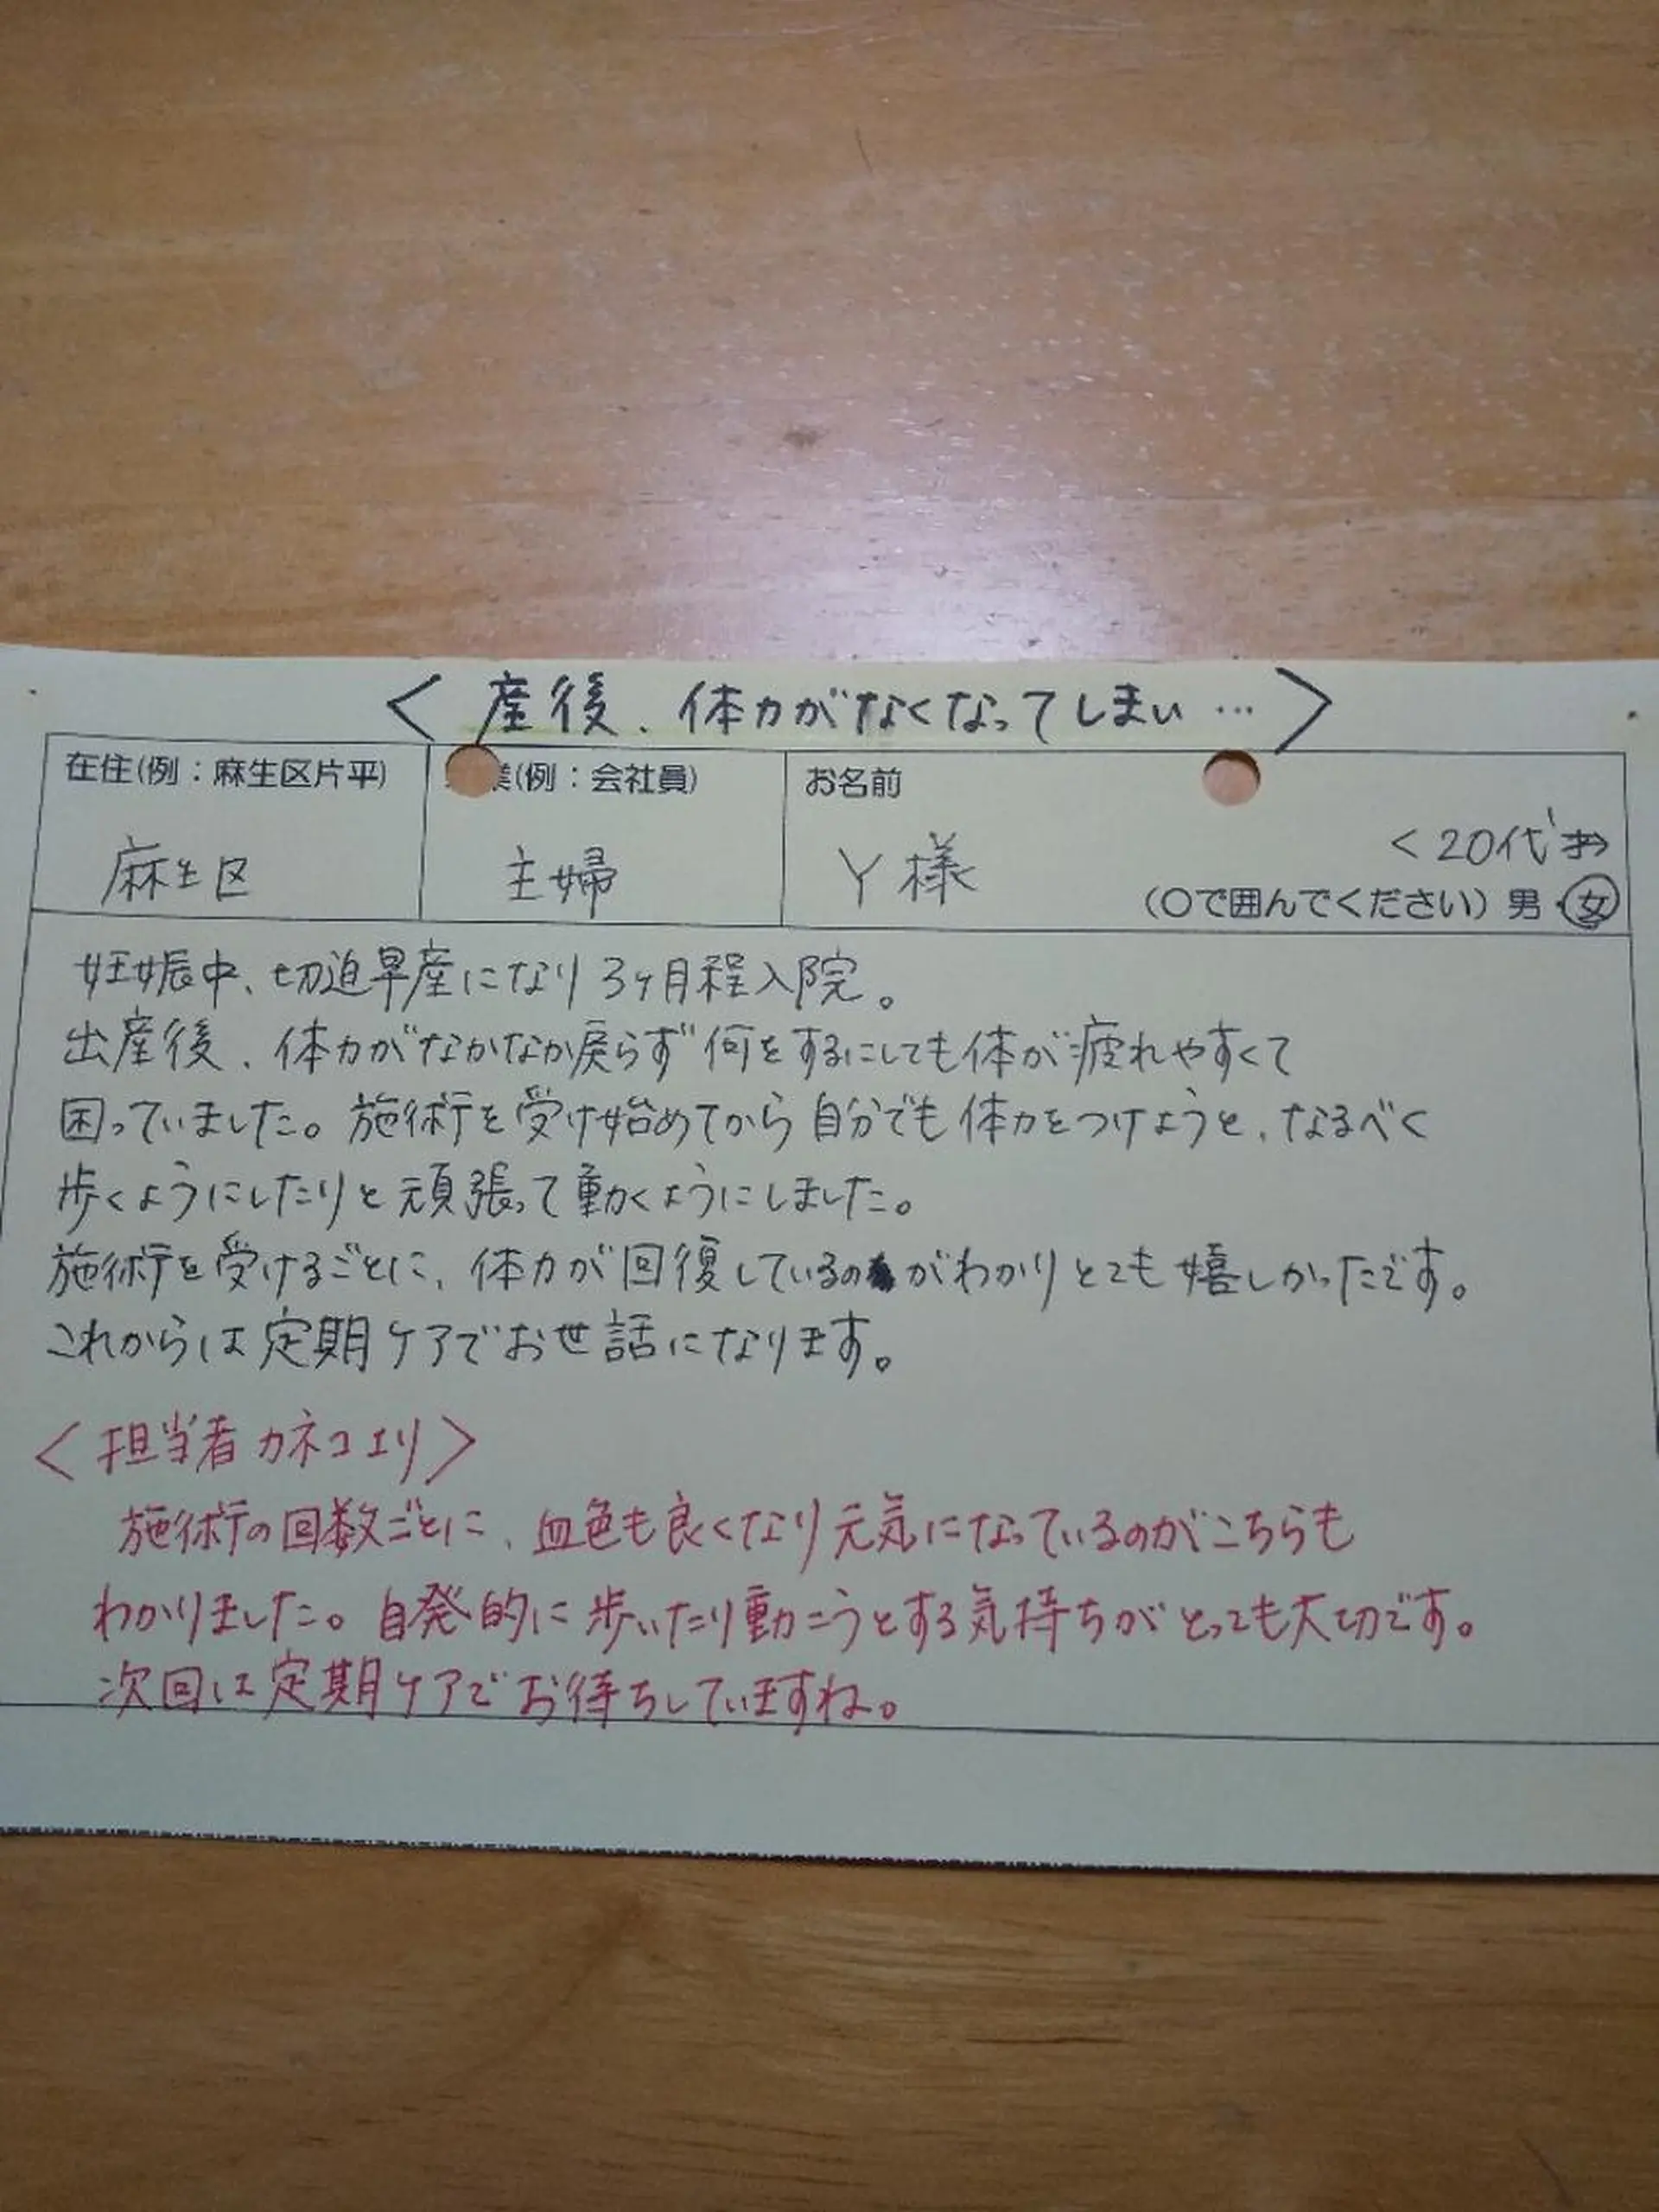 ＜産後、体力がなくなってしまい…＞
在住(例：麻生区片平)
業(例：会社員)
お名前
麻生区
主婦
Y様
＜20代
(〇で囲んでください) 男・女
妊娠中、切迫早産になり3ヶ月程入院。
出産後、体力がなかなか戻らず何をするにしても体が疲れやすくて
困っていました。施術を受け始めてから自分でも体力をつけようと、なるべく
歩くようにしたりと頑張って動くようにしました。
施術を受けるごとに、体力が回復しているのがわかりとても嬉しかったです。
これからは定期ケアでお世話になります。
＜担当者カネコエリ＞
施術の回数ごとに、血色も良くなり元気になっているのがこちらも
わかりました。自発的に歩いたり動こうとする気持ちがとっても大切です。
次回は定期ケアでお待ちしていますね。